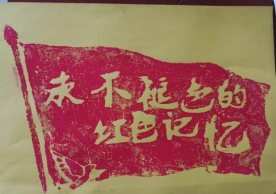 永不褪色的
红色记忆